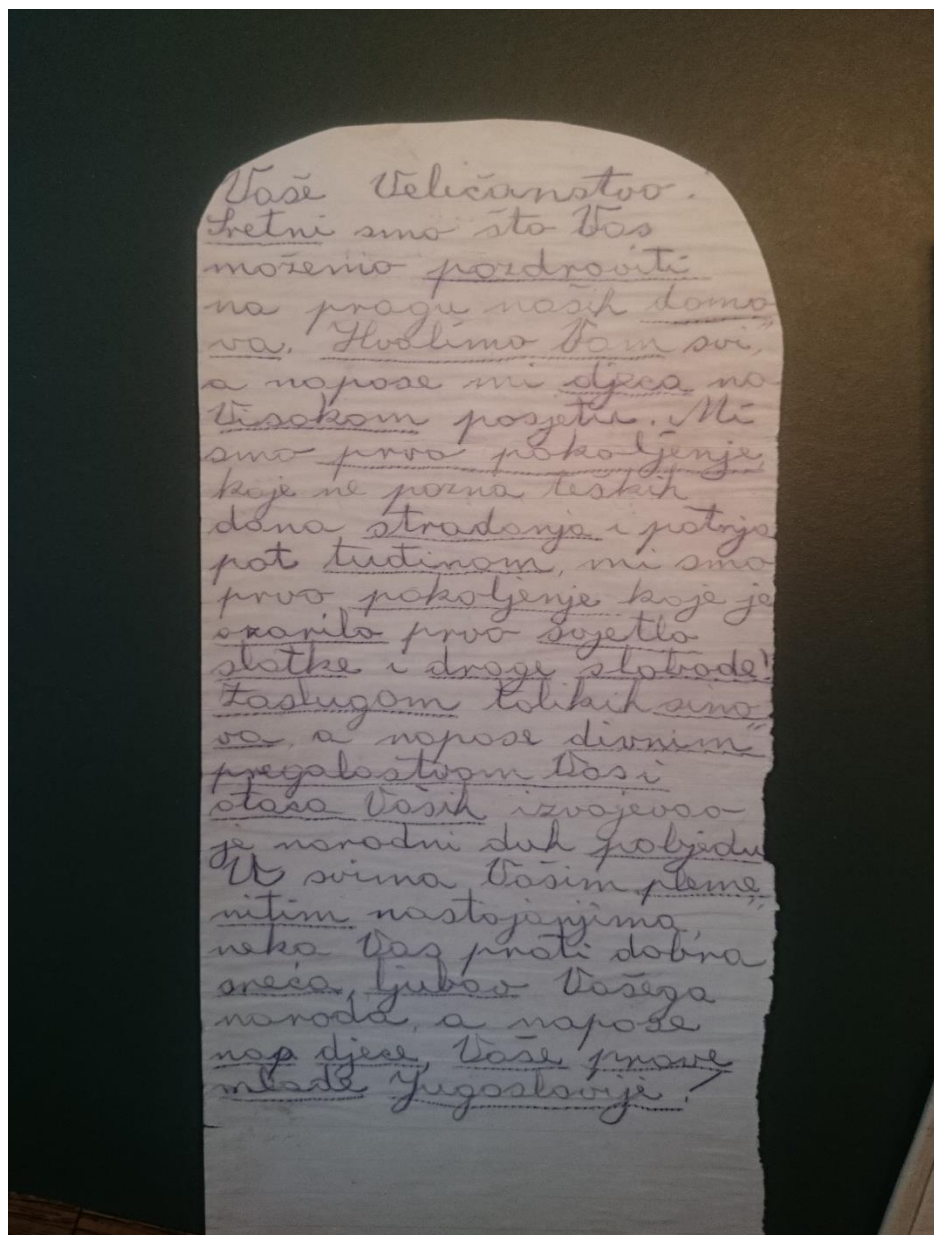 Vaše Veličanstvo.
Sretni smo što Vas
možemo pozdraviti
na pragu naših domo
va. Hvalimo Vam svi,
a napose mi djeca na
Visokom posjetu. Mi
smo prvo pokoljenje,
koje ne pozna teških
dana stradanja i patnja
pot tuđinom, mi smo
prvo pokoljenje koje je
ozarilo prvo svjetlo
slatke i drage slobode!
Zaslugom tolikih sino
va, a napose divnim
pregalaštvom Vas i
otaca Vaših izvojevao
je narodni duh pobjedu
U svima Vašim pleme
nitim nastojanjima,
neka Vas prati dobra
sreća, ljubav Vašega
naroda, a napose
nas djece, Vaše prave
mlade Jugoslavije!